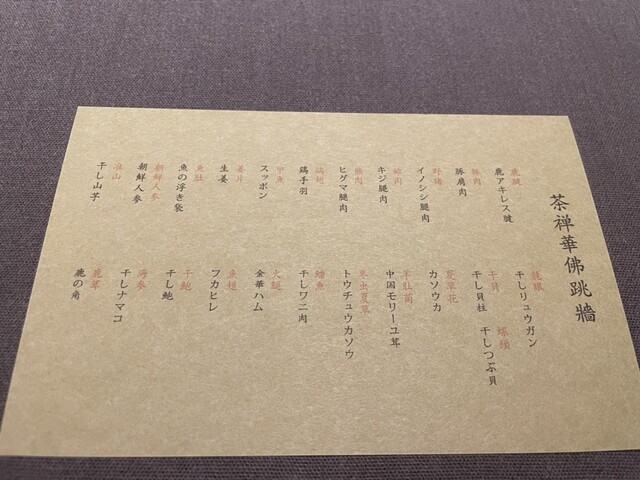 茶禅華佛跳牆
鹿腱
鹿アキレス腱
豚肉
豚肩肉
野猪
イノシシ腿肉
雉肉
キジ腿肉
熊肉
ヒグマ腿肉
鶏翅
鶏手羽
甲魚
スッポン
姜片
生姜
魚肚
魚の浮き袋
朝鮮人参
朝鮮人参
淮山
干し山芋
龍眼
干しリュウガン
干貝 螺頭
干し貝柱 干しつぶ貝
蟲草花
カソウカ
羊肚菌
中国モリーユ茸
冬虫夏草
トウチュウカソウ
鰐魚
干しワニ肉
火腿
金華ハム
魚翅
フカヒレ
干鮑
干し鮑
海参
干しナマコ
鹿茸
鹿の角